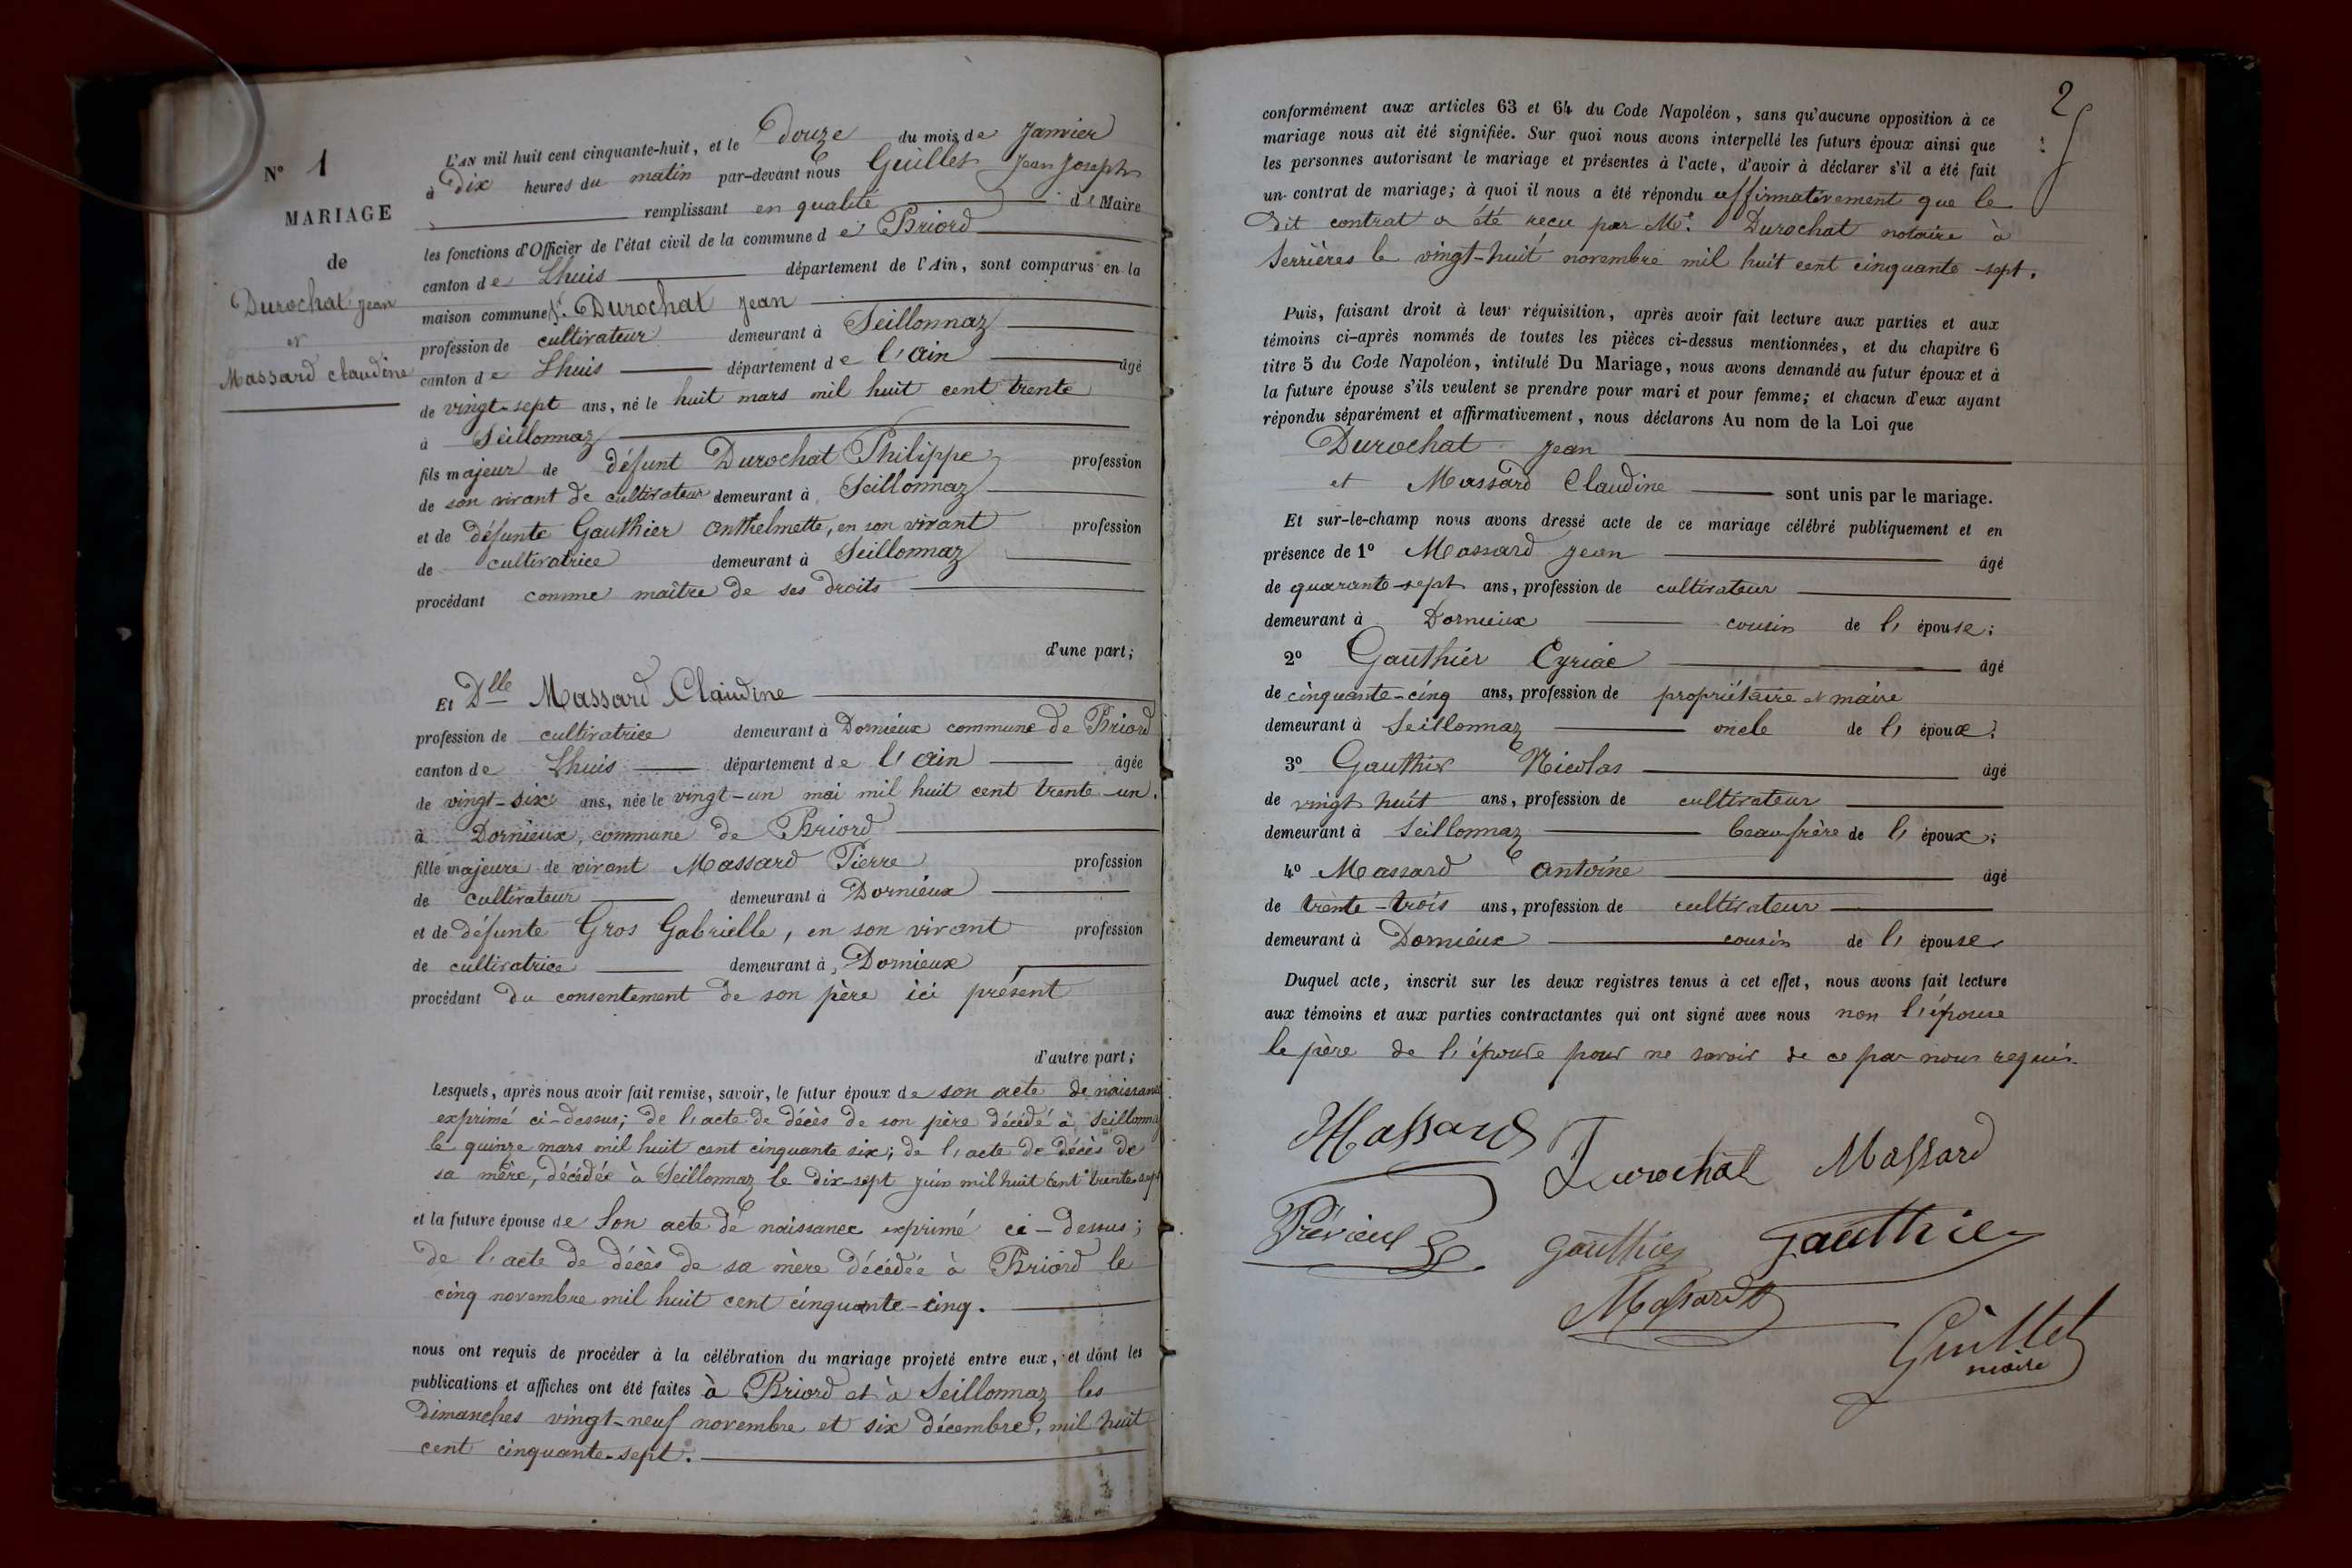 N° 1
MARIAGE
de
Durochat Jean
et
Massard Claudine
L'AN mil huit cent cinquante-huit, et le Douze du mois de Janvier
à Dix heures du matin par-devant nous Guillet Jean Joseph
remplissant en qualité de Maire
les fonctions d'Officier de l'état civil de la commune de Briord
canton de Lhuis département de l'Ain, sont comparus en la
maison commune Sr. Durochat Jean
profession de cultivateur demeurant à Seillonnaz
canton de Lhuis département de l'Ain âgé
de vingt-sept ans, né le huit mars mil huit cent trente
à Seillonnaz
fils majeur de défunt Durochat Philippe profession
de son vivant de cultivateur demeurant à Seillonnaz
et de défunte Gauthier Anthelmette, en son vivant profession
de cultivatrice demeurant à Seillonnaz
procédant comme maître de ses droits
d'une part;
Et Dlle Massard Claudine
profession de cultivatrice demeurant à Dornieux commune de Briord
canton de Lhuis département de l'Ain âgée
de vingt-six ans, née le vingt-un mai mil huit cent trente-un.
à Dornieux, commune de Briord
fille majeure de vivant Massard Pierre profession
de cultivateur demeurant à Dornieux
et de défunte Gros Gabrielle, en son vivant profession
de cultivatrice demeurant à Dornieux
procédant du consentement de son père ici présent
d'autre part;
Lesquels, après nous avoir fait remise, savoir, le futur époux de son acte de naissance
exprimé ci-dessus; de l'acte de décès de son père décédé à Seillonnaz
le quinze mars mil huit cent cinquante six; de l'acte de décès de
sa mère, décédée à Seillonnaz le dix-sept juin mil huit cent trente-sept
et la future épouse de Son acte de naissance exprimé ci-dessus;
de l'acte de décès de sa mère décédée à Briord le
cinq novembre mil huit cent cinquante-cinq.
nous ont requis de procéder à la célébration du mariage projeté entre eux, et dont les
publications et affiches ont été faites à Briord et à Seillonnaz les
Dimanches vingt-neuf novembre et six décembre, mil huit
cent cinquante-sept.
2
conformément aux articles 63 et 64 du Code Napoléon, sans qu'aucune opposition à ce
mariage nous ait été signifiée. Sur quoi nous avons interpellé les futurs époux ainsi que
les personnes autorisant le mariage et présentes à l'acte, d'avoir à déclarer s'il a été fait
un contrat de mariage; à quoi il nous a été répondu affirmativement que le
dit contrat a été reçu par Me. Durochat notaire à
Serrières le vingt-huit novembre mil huit cent cinquante-sept.
Puis, faisant droit à leur réquisition, après avoir fait lecture aux parties et aux
témoins ci-après nommés de toutes les pièces ci-dessus mentionnées, et du chapitre 6
titre 5 du Code Napoléon, intitulé Du Mariage, nous avons demandé au futur époux et à
la future épouse s'ils veulent se prendre pour mari et pour femme; et chacun d'eux ayant
répondu séparément et affirmativement, nous déclarons Au nom de la Loi que
Durochat Jean
et Massard Claudine sont unis par le mariage.
Et sur-le-champ nous avons dressé acte de ce mariage célébré publiquement et en
présence de 1° Massard Jean âgé
de quarante-sept ans, profession de cultivateur
demeurant à Dornieux cousin de l'épouse;
2° Gauthier Cyriac âgé
de cinquante-cinq ans, profession de propriétaire et maire
demeurant à Seillonnaz oncle de l'époux;
3° Gauthier Nicolas âgé
de vingt huit ans, profession de cultivateur
demeurant à Seillonnaz beau frère de l'époux;
4° Massard Antoine âgé
de trente-trois ans, profession de cultivateur
demeurant à Dornieux cousin de l'épouse
Duquel acte, inscrit sur les deux registres tenus à cet effet, nous avons fait lecture
aux témoins et aux parties contractantes qui ont signé avec nous non l'épouse
le père de l'épouse pour ne savoir de ce par nous requis.
Massard
Durochat Massard
Gauthier Gauthier
Massard
Guillet
maire